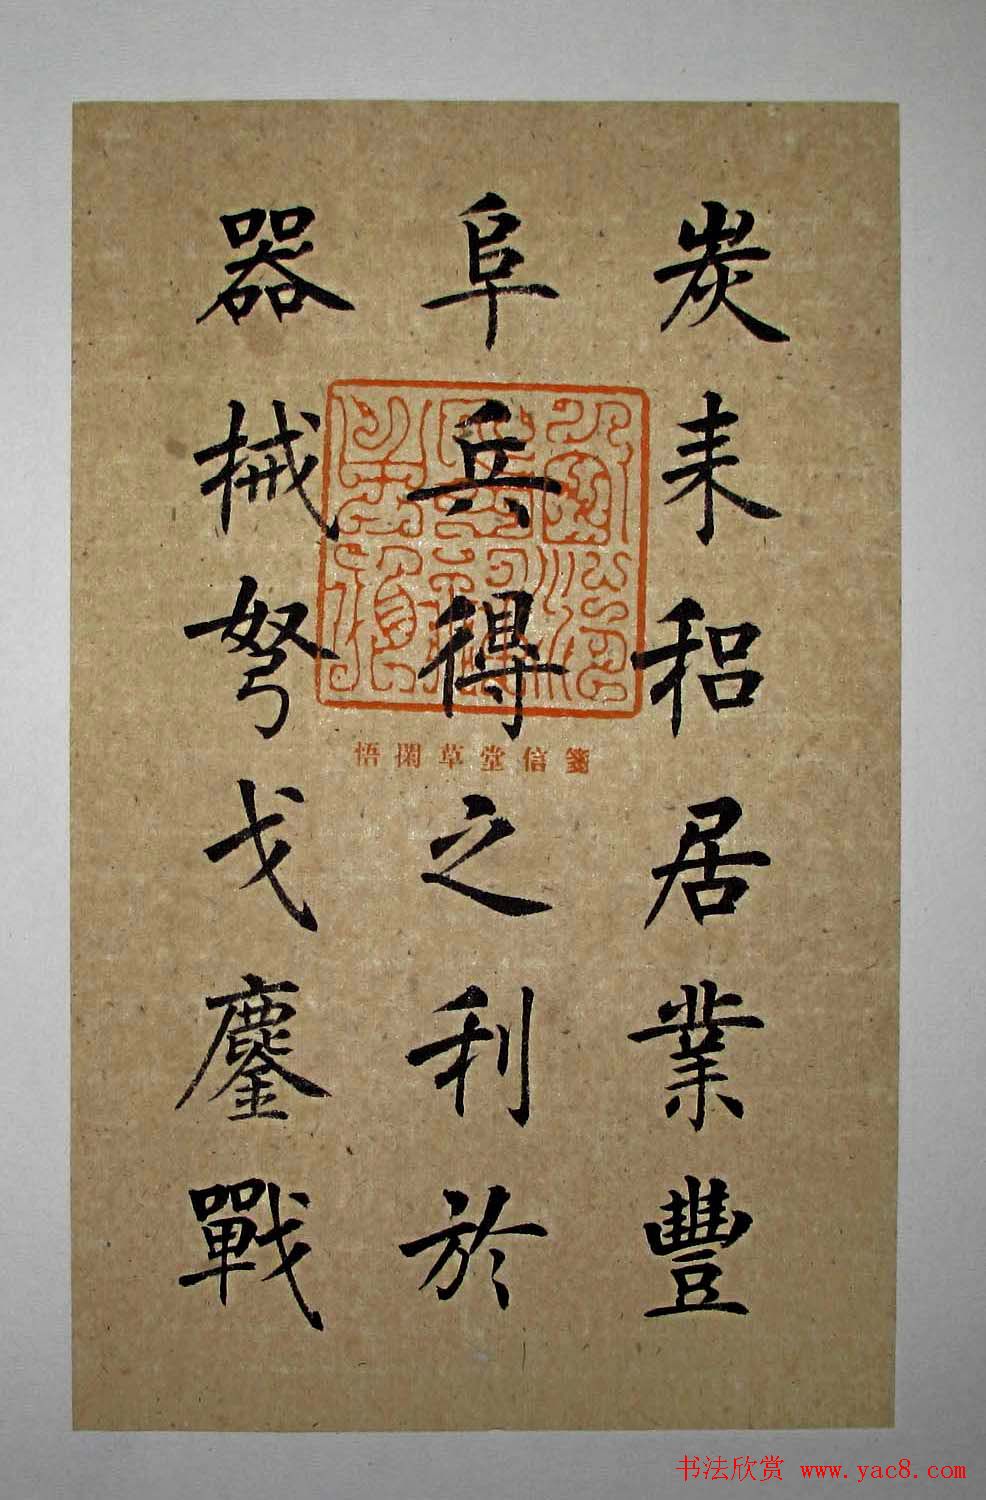 炭耒耜居業豐
阜兵得之利於
器械弩戈鏖戰
悟閑草堂信箋
书法欣赏 www.yac8.com